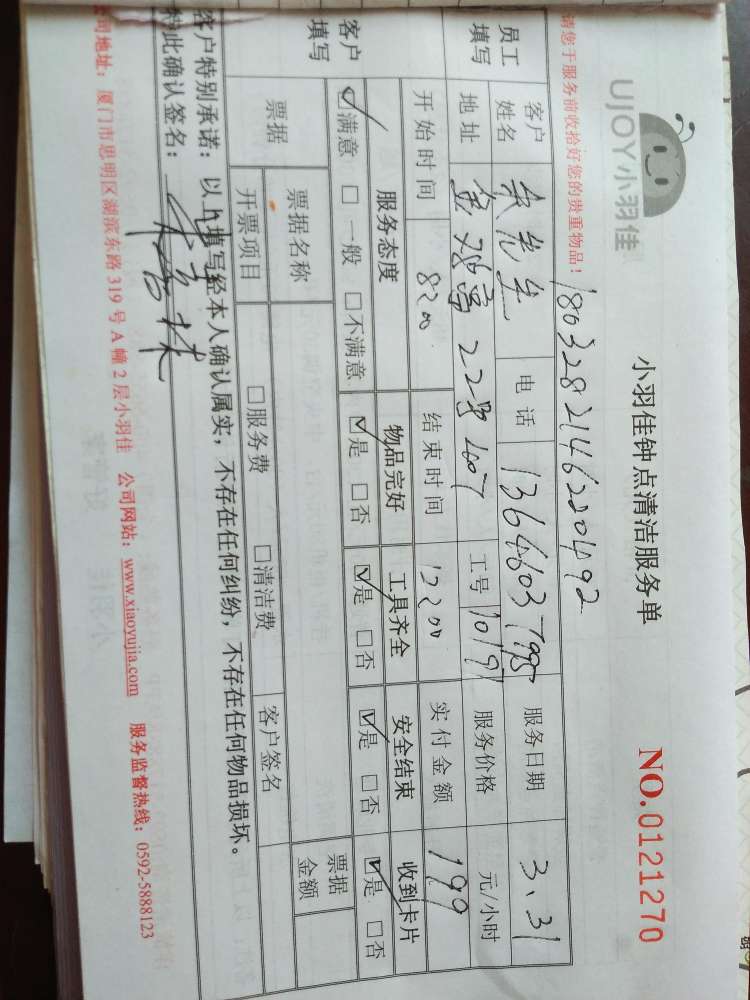 UJOY小羽佳
小羽佳钟点清洁服务单
NO.0121270
请您于服务前收拾好您的贵重物品！
1803282146220492
员工填写
客户姓名 先生 电话 服务日期 3.31
地址 工号 10191 服务价格 元/小时
开始时间 8:00 结束时间 12:00 实付金额 199
客户填写
服务态度 物品完好 工具齐全 安全结束 收到卡片
☑满意 □一般 □不满意 ☑是 □否 ☑是 □否 ☑是 □否 ☑是 □否
票据 票据名称 票据金额
开票项目 □服务费 □清洁费 客户签名
客户特别承诺：以上填写经本人确认属实，不存在任何纠纷，不存在任何物品损坏。
特此确认签名：
公司地址：厦门市思明区湖滨东路319号A幢2层小羽佳 公司网站：www.xiaoyujia.com 服务监督热线：0592-5888123